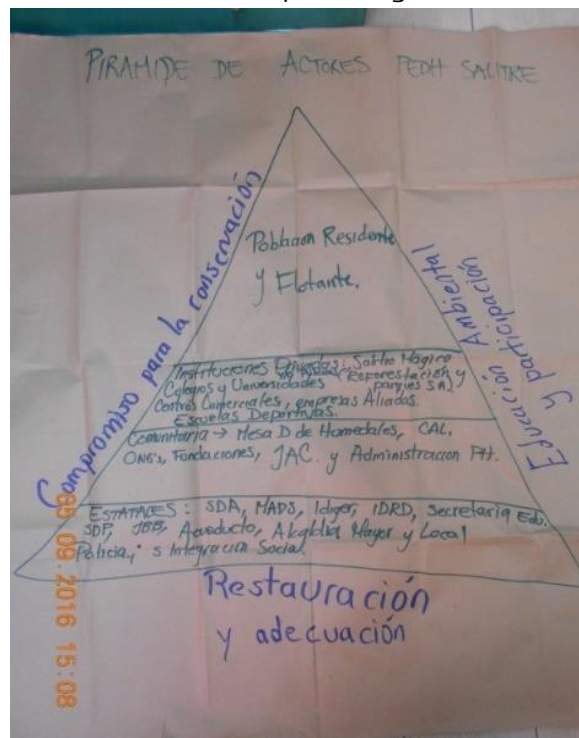 PIRAMIDE DE ACTORES PEDH SALITRE
Poblacion Residente
y Flotante.
Compromiso para la conservación
Educación Ambiental
y participación
Instituciones Privadas: Salitre Magico
Colegios y Universidades (reforestación y
parques SA)
Centros Comerciales, empresas Aliadas.
Escuelas Deportivas.
Comunitaria → Mesa D de Humedales, CAL,
ONG's, Fundaciones, JAC. y Administracion PH.
ESTATALES: SDA, MADS, Idiger, IDRD, Secretaria Edu.
SDP, JBB, Acueducto, Alcaldia Mayor y Local
Policia, s Integracion Social.
Restauración
y adecuación
09.2016 15:08